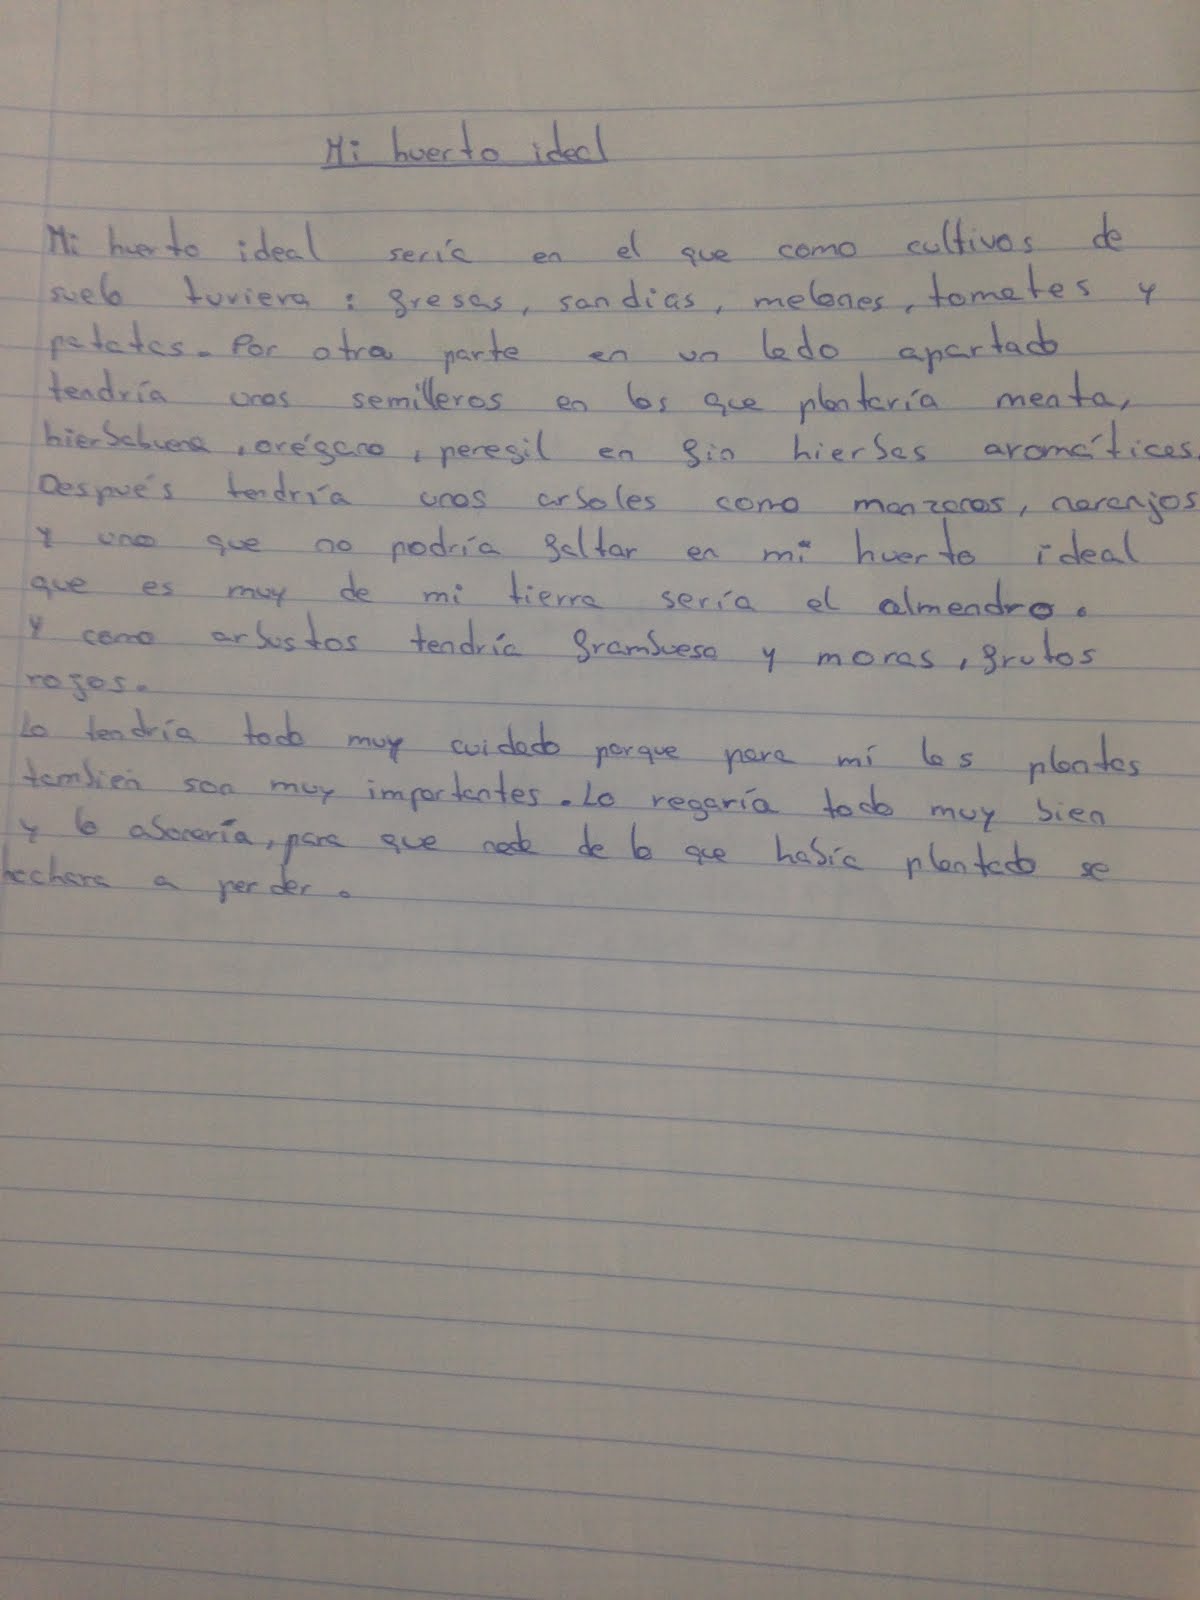 Mi huerto ideal
Mi huerto ideal sería en el que como cultivos de
suelo tuviera: fresas, sandias, melones, tomates y
patatas. Por otra parte en un lado apartado
tendría unos semilleros en los que plantaría menta,
hierbabuena, orégano, peregil en fin hierbas aromáticas.
Después tendría unos arboles como manzanos, naranjos
y uno que no podría faltar en mi huerto ideal
que es muy de mi tierra sería el almendro.
Y como arbustos tendría frambuesa y moras, frutos
rojos.
Lo tendría todo muy cuidado porque para mí las plantas
también son muy importantes. Lo regaría todo muy bien
y lo abonaría, para que nada de lo que había plantado se
hechara a perder.